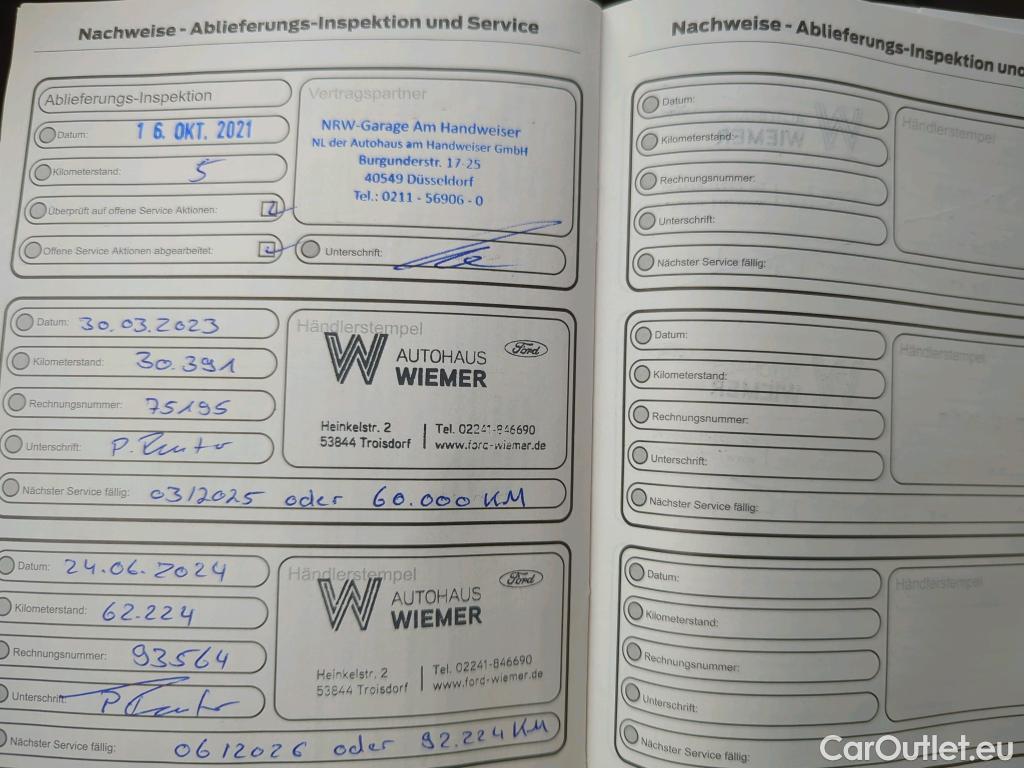 Nachweise - Ablieferungs-Inspektion und Service
Ablieferungs-Inspektion
Datum: 16. OKT. 2021
Kilometerstand: 5
Überprüft auf offene Service Aktionen:
Offene Service Aktionen abgearbeitet:
Vertragspartner
NRW-Garage Am Handweiser
NL der Autohaus am Handweiser GmbH
Burgunderstr. 17-25
40549 Düsseldorf
Tel.: 0211 - 56906 - 0
Unterschrift:
Datum: 30.03.2023
Kilometerstand: 30.391
Rechnungsnummer: 75195
Unterschrift:
Händlerstempel
W AUTOHAUS WIEMER
Ford
Heinkelstr. 2
53844 Troisdorf
Tel. 02241-846690
www.ford-wiemer.de
Nächster Service fällig: 03/2025 oder 60.000 KM
Datum: 24.06.2024
Kilometerstand: 62.224
Rechnungsnummer: 93564
Unterschrift:
Händlerstempel
W AUTOHAUS WIEMER
Ford
Heinkelstr. 2
53844 Troisdorf
Tel. 02241-846690
www.ford-wiemer.de
Nächster Service fällig: 06/2026 oder 92.224 KM
Nachweise - Ablieferungs-Inspektion und
Datum:
Kilometerstand:
Rechnungsnummer:
Unterschrift:
Nächster Service fällig:
Händlerstempel
Datum:
Kilometerstand:
Rechnungsnummer:
Unterschrift:
Nächster Service fällig:
Händlerstempel
Datum:
Kilometerstand:
Rechnungsnummer:
Unterschrift:
Nächster Service fällig:
Händlerstempel
CarOutlet.eu